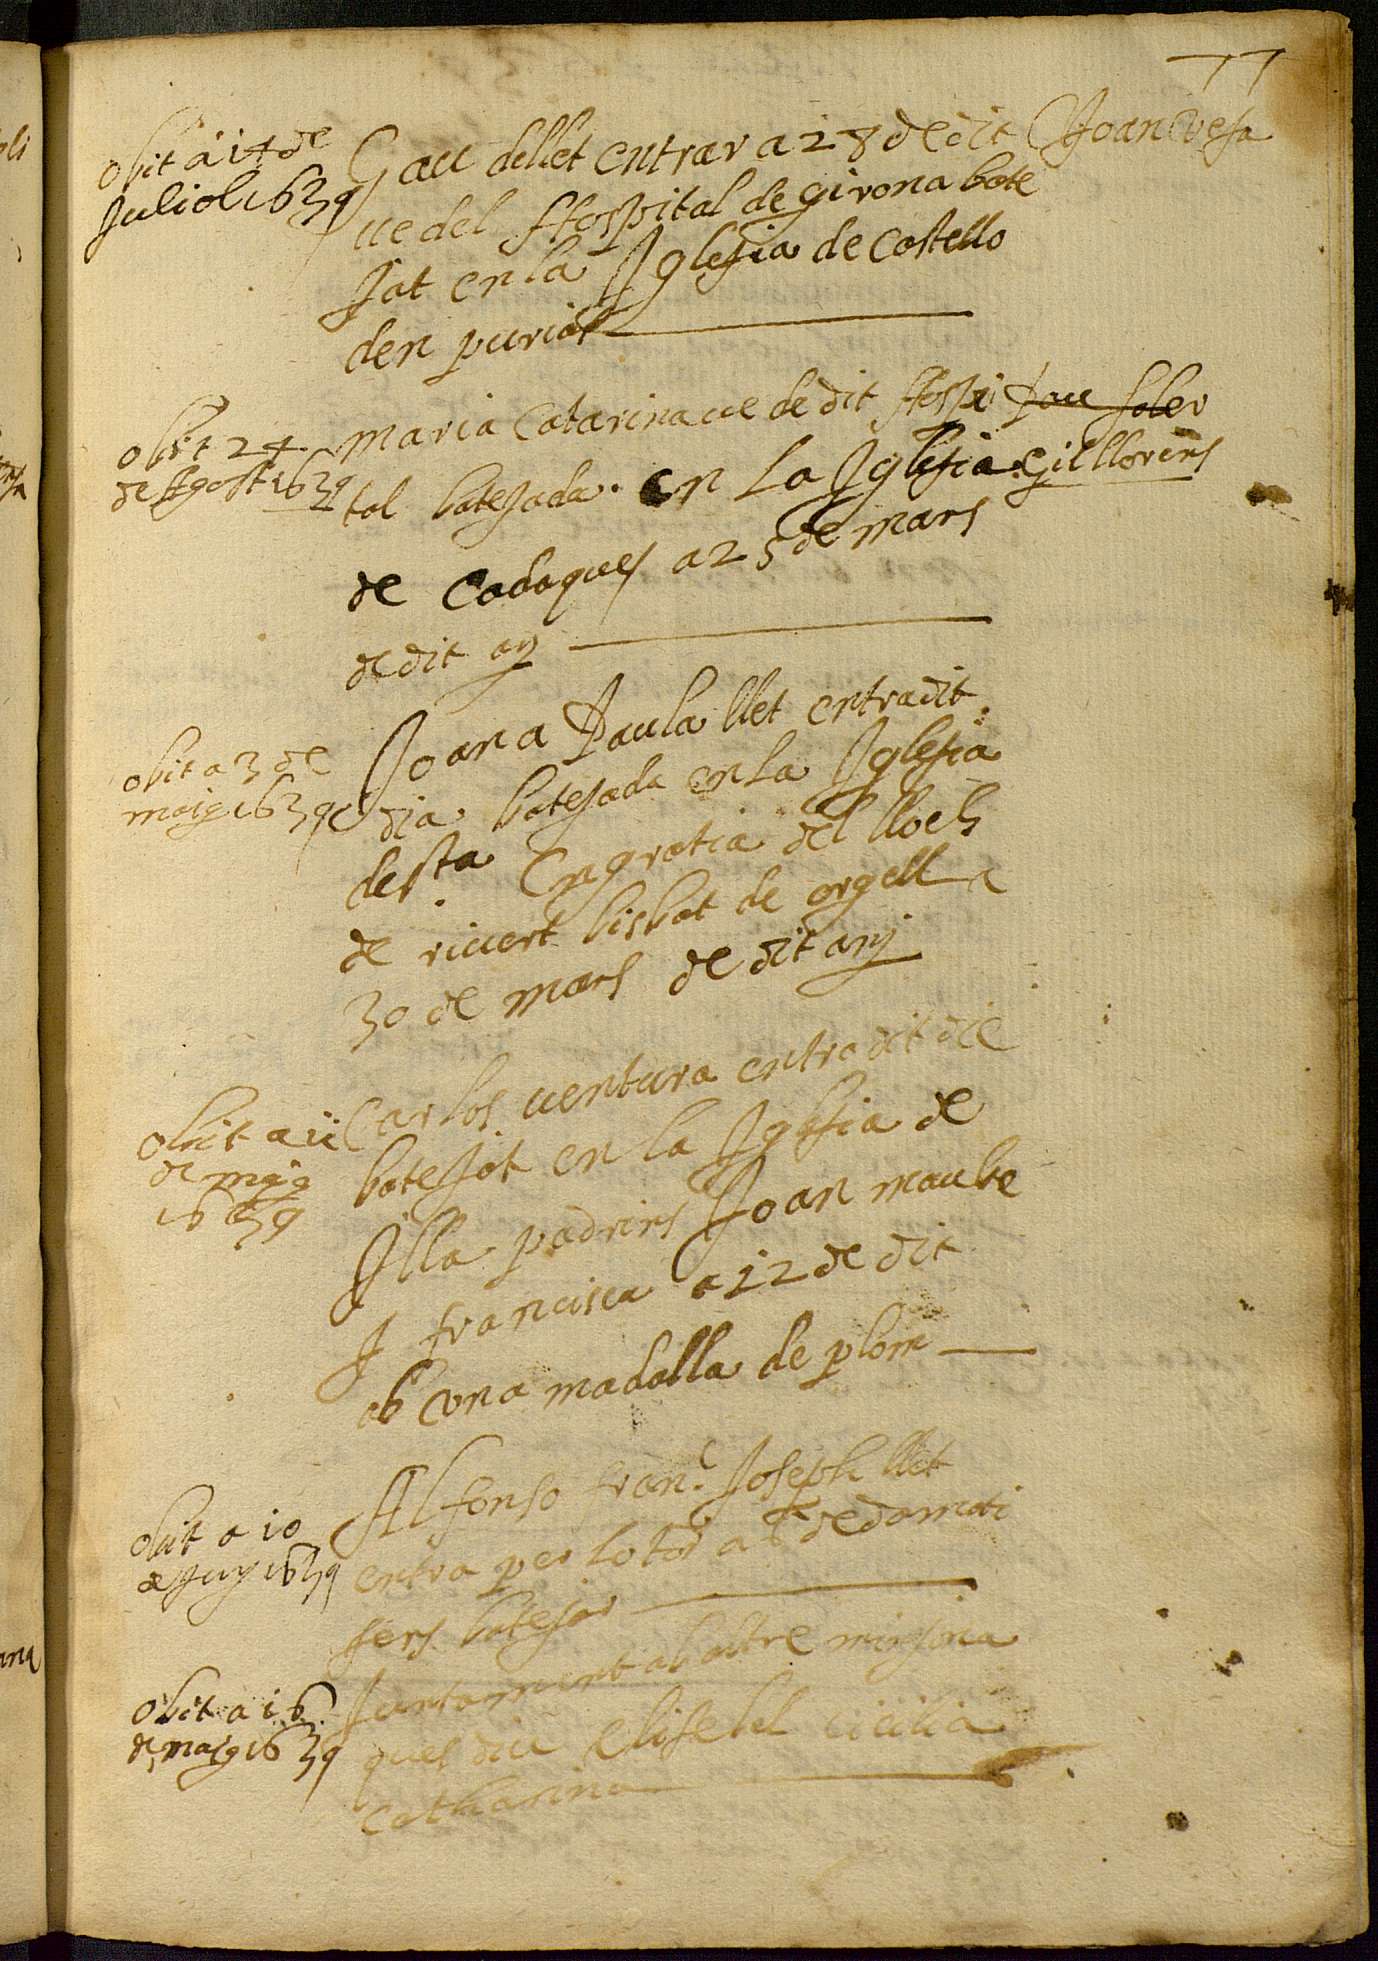 77
obit a 14 de
Juliol 1639
Gau dellet entrar a 28 de dit
Joan Vesa
ve del Hospital de girona bate
Jat en la Iglesia de Castello
den puriol
obit 24
de Agost 1639
Maria Catarina ve de dit Hospi
Pau soler
tal batejada en La Iglesia
Gillorens
de Cadaques a 25 de mars
de dit any
obit a 3 de
maig 1639
Joana Paula llet entra dit
dia batejada en La Iglesia
de sta Engratia del lloch
de rivert bisbat de orgell a
30 de mars de dit any
obit a 11
de maig
1639
Carlos ventura entra dit die
batejat en la Iglesia de
Illa padrins Joan maube
J francisca a 12 de dit
ab una madalla de plom
obit a 10
de Juny 1639
Alfonso franc. Joseph llet
entra per lo tor a 6 de
sens batejar
obit a 16
de maig 1639
Juntament ab altre minyona
ques diu Elisabel cicilia
Catharina